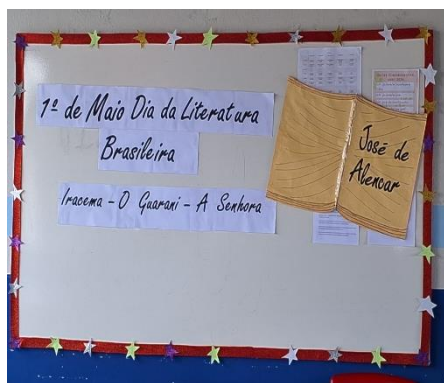 1º de Maio Dia da Literatura
Brasileira
Iracema - O Guarani - A Senhora
José de
Alencar